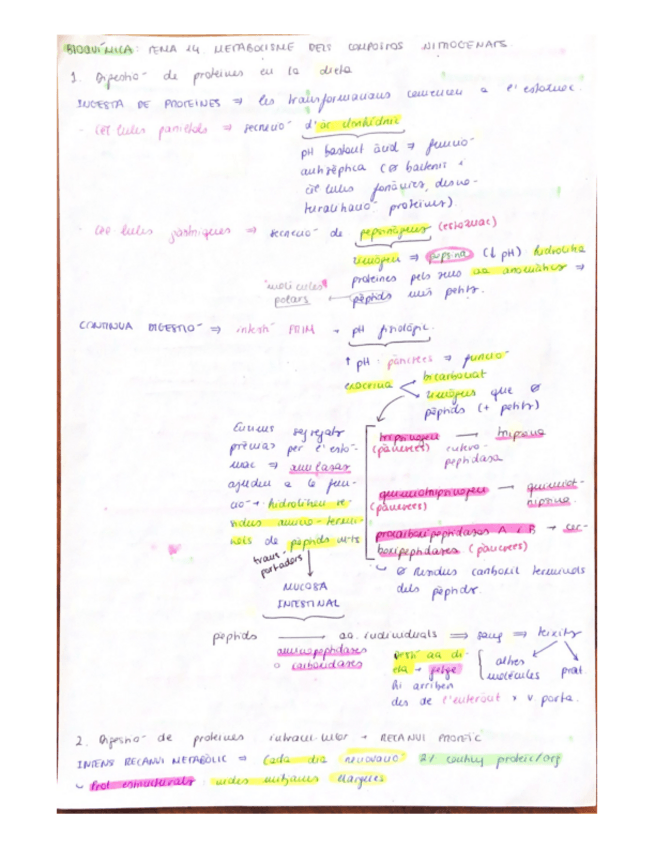 BIOQUÍMICA: TEMA 14. METABOLISME DELS COMPOSTOS NITROGENATS.
1. Digestió de proteïnes en la dieta
INGESTA DE PROTEÏNES ⇒ les transformacions comencen a l'estómac.
- Cèl·lules parietals ⇒ secreció d'àc. clorhídric
pH bastant àcid ⇒ funció
antisèptica (Ø bacteris i
cèl·lules forànies, desna-
turalització proteïnes).
- Cèl·lules gàstriques ⇒ secreció de pepsinògens (estómac)
zimogen ⇒ pepsina (↓ pH) hidrolitza
proteïnes pels seus aa aromàtics ⇒
"molècules
potars pèptids més petits.
CONTINUA DIGESTIÓ ⇒ intestí PRIM → pH fisiològic.
↑ pH · pàncrees ⇒ funció
exocrina bicarbonat
zimògens que Ø
pèptids (+ petits)
Enzims segregats
prèvies per l'estó-
mac ⇒
ajuden a la fun-
ció → hidrolitzen re-
sidus amino-termi-
nals de pèptids
trans-
portadors
tripsinogen → tripsina
(pàncrees) entero-
peptidasa
quimiotripsinogen → quimiot-
(pàncrees) ripsina.
procarboxipeptidases A i B → car-
boxipeptidases (pàncrees)
Ø residus carboxil terminals
dels pèptids.
MUCOSA
INTESTINAL
pèptids → aa. individuals ⇒ sang ⇒ teixits
aminopeptidases
o
Destí aa di-
eta → fetge
hi arriben
altres
molècules
prot
des de l'enteròcit x v. porta.
2. Digestió de proteïnes intracel·lular → RECANVI PROTEIC
INTENS RECANVI METABÒLIC ⇒ Cada dia renovació 2% conting proteic/org
Prot estructurals: vides mitjanes llargues